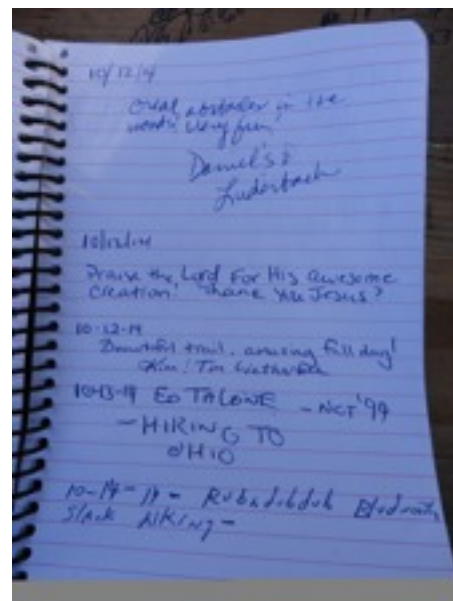 10/12/14
Great obstacles in the
woods! Very fun!
Daniel's &
10/12/14
Praise the Lord For His awesome
Creation! Thank You Jesus!
10-12-14
Beautiful trail. amazing fall day!
Kim & Tim
10-13-14 ED TALONE - NCT '94
- HIKING TO
OHIO
10-14-14 - Rubadubdub
Slack HIKING -